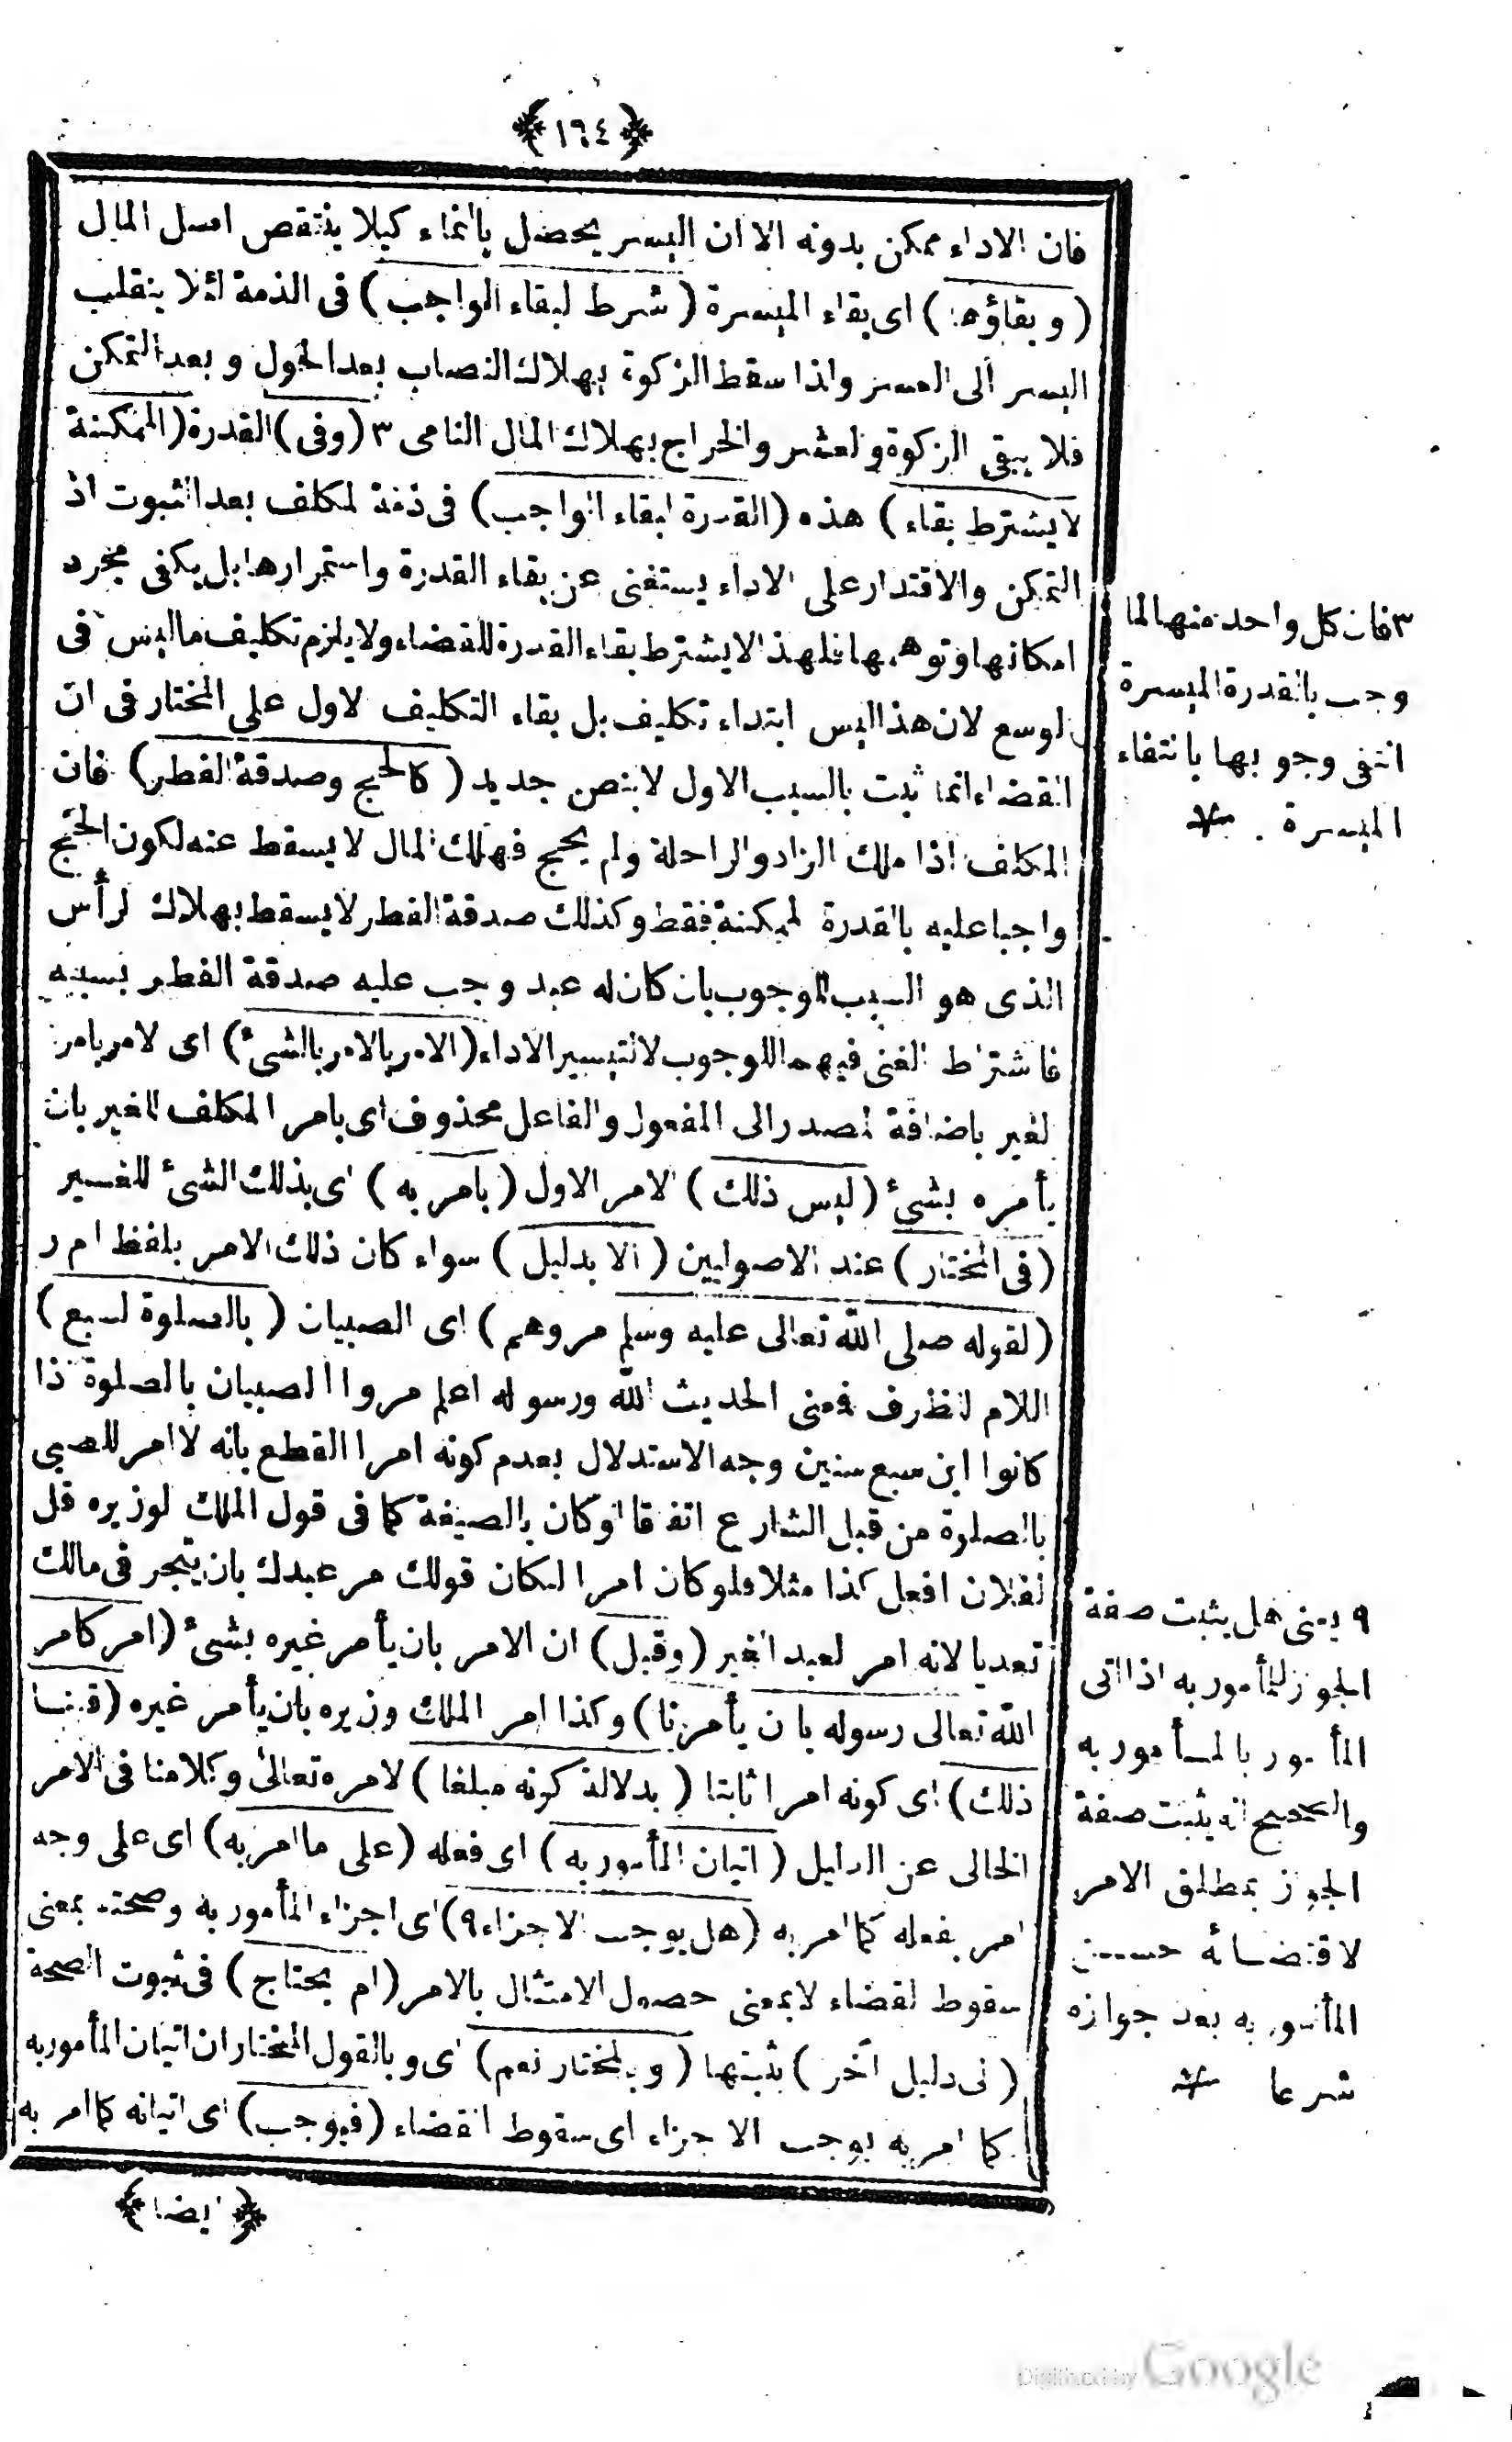 ﴿ ١٦٤ ﴾
فان الاداء ممكن بدونه الا ان اليسر يحصل بالنماء كيلا ينتقص اصل المال
( و بقاؤها ) اى بقاء الميسرة ( شرط لبقاء الواجب ) فى الذمة لئلا ينقلب
اليسر الى العسر ولذا سقط الزكوة بهلاك النصاب بعد الحول و بعد التمكن
فلا يبقى الزكوة والعشر والخراج بهلاك المال النامى ٣ ( وفى ) القدرة ( الممكنة
لا يشترط بقاء ) هذه ( القدرة لبقاء الواجب ) فى ذمة المكلف بعد الثبوت اذ
التمكن والاقتدار على الاداء يستغنى عن بقاء القدرة واستمرارها بل يكفى مجرد
امكانها وتوهمها فلهذا لا يشترط بقاء القدرة للقضاء ولا يلزم تكليف ما ليس فى
الوسع لان هذا ليس ابتداء تكليف بل بقاء التكليف الاول على المختار فى ان
القضاء انما ثبت بالسبب الاول لا بنص جديد ( كالحج وصدقة الفطر ) فان
المكلف اذا ملك الزاد والراحلة ولم يحج فهلك المال لا يسقط عنه لكون الحج
واجبا عليه بالقدرة الممكنة فقط وكذلك صدقة الفطر لا يسقط بهلاك الرأس
الذى هو السبب للوجوب بان كان له عبد وجب عليه صدقة الفطر بسببه
فاشتراط الغنى فيهما للوجوب لا لتيسير الاداء ( الامر بالامر بالشئ ) اى الامر بامر
الغير باضافة المصدر الى المفعول والفاعل محذوف اى بامر المكلف الغير بان
يأمره بشئ ( ليس ذلك ) الامر الاول ( بامر به ) اى بذلك الشئ للغير
( فى المختار ) عند الاصوليين ( الا بدليل ) سواء كان ذلك الامر بلفظ ا م ر
( لقوله صلى الله تعالى عليه وسلم مروهم ) اى الصبيان ( بالصلوة لسبع )
اللام للظرف فمعنى الحديث الله ورسوله اعلم مروا الصبيان بالصلوة اذا
كانوا ابن سبع سنين وجه الاستدلال بعدم كونه امرا القطع بانه لا امر للصبى
بالصلوة من قبل الشارع اتفاقا او كان بالصيغة كما فى قول الملك لوزيره قل
لفلان افعل كذا مثلا فلو كان امرا لكان قولك مر عبدك بان يتجر فى مالك
تعديا لانه امر لعبد الغير ( وقيل ) ان الامر بان يأمر غيره بشئ ( امر كامر
الله تعالى رسوله بان يأمرنا ) وكذا امر الملك وزيره بان يأمر غيره ( قلنا
ذلك ) اى كونه امرا ثابتا ( بدلالة كونه مبلغا ) لامره تعالى وكلامنا فى الامر
الخالى عن الدليل ( اتيان المأمور به ) اى فعله ( على ما امر به ) اى على وجه
امر بفعله كما امر به ( هل يوجب الاجزاء ٩ ) اى اجزاء المأمور به وصحته بمعنى
سقوط القضاء لا بمعنى حصول الامتثال بالامر ( ام يحتاج ) فى ثبوت الصحة
( الى دليل آخر ) يثبتها ( و بالمختار نعم ) اى و بالقول المختار ان اتيان المأمور به
كما امر به يوجب الاجزاء اى سقوط القضاء ( فيوجب ) اى اتيانه كما امر به
﴿ ايضا ﴾
٣ فان كل واحد منها لما
وجب بالقدرة الميسرة
انتفى وجوبها بانتفاء
الميسرة .
٩ يعنى هل يثبت صفة
الجواز للمأمور به اذا اتى
المأمور بالمأمور به
والصحيح انه يثبت صفة
الجواز بمطلق الامر
لاقتضائه حسن
المأمور به بعد جوازه
شرعا
Digitized by Google